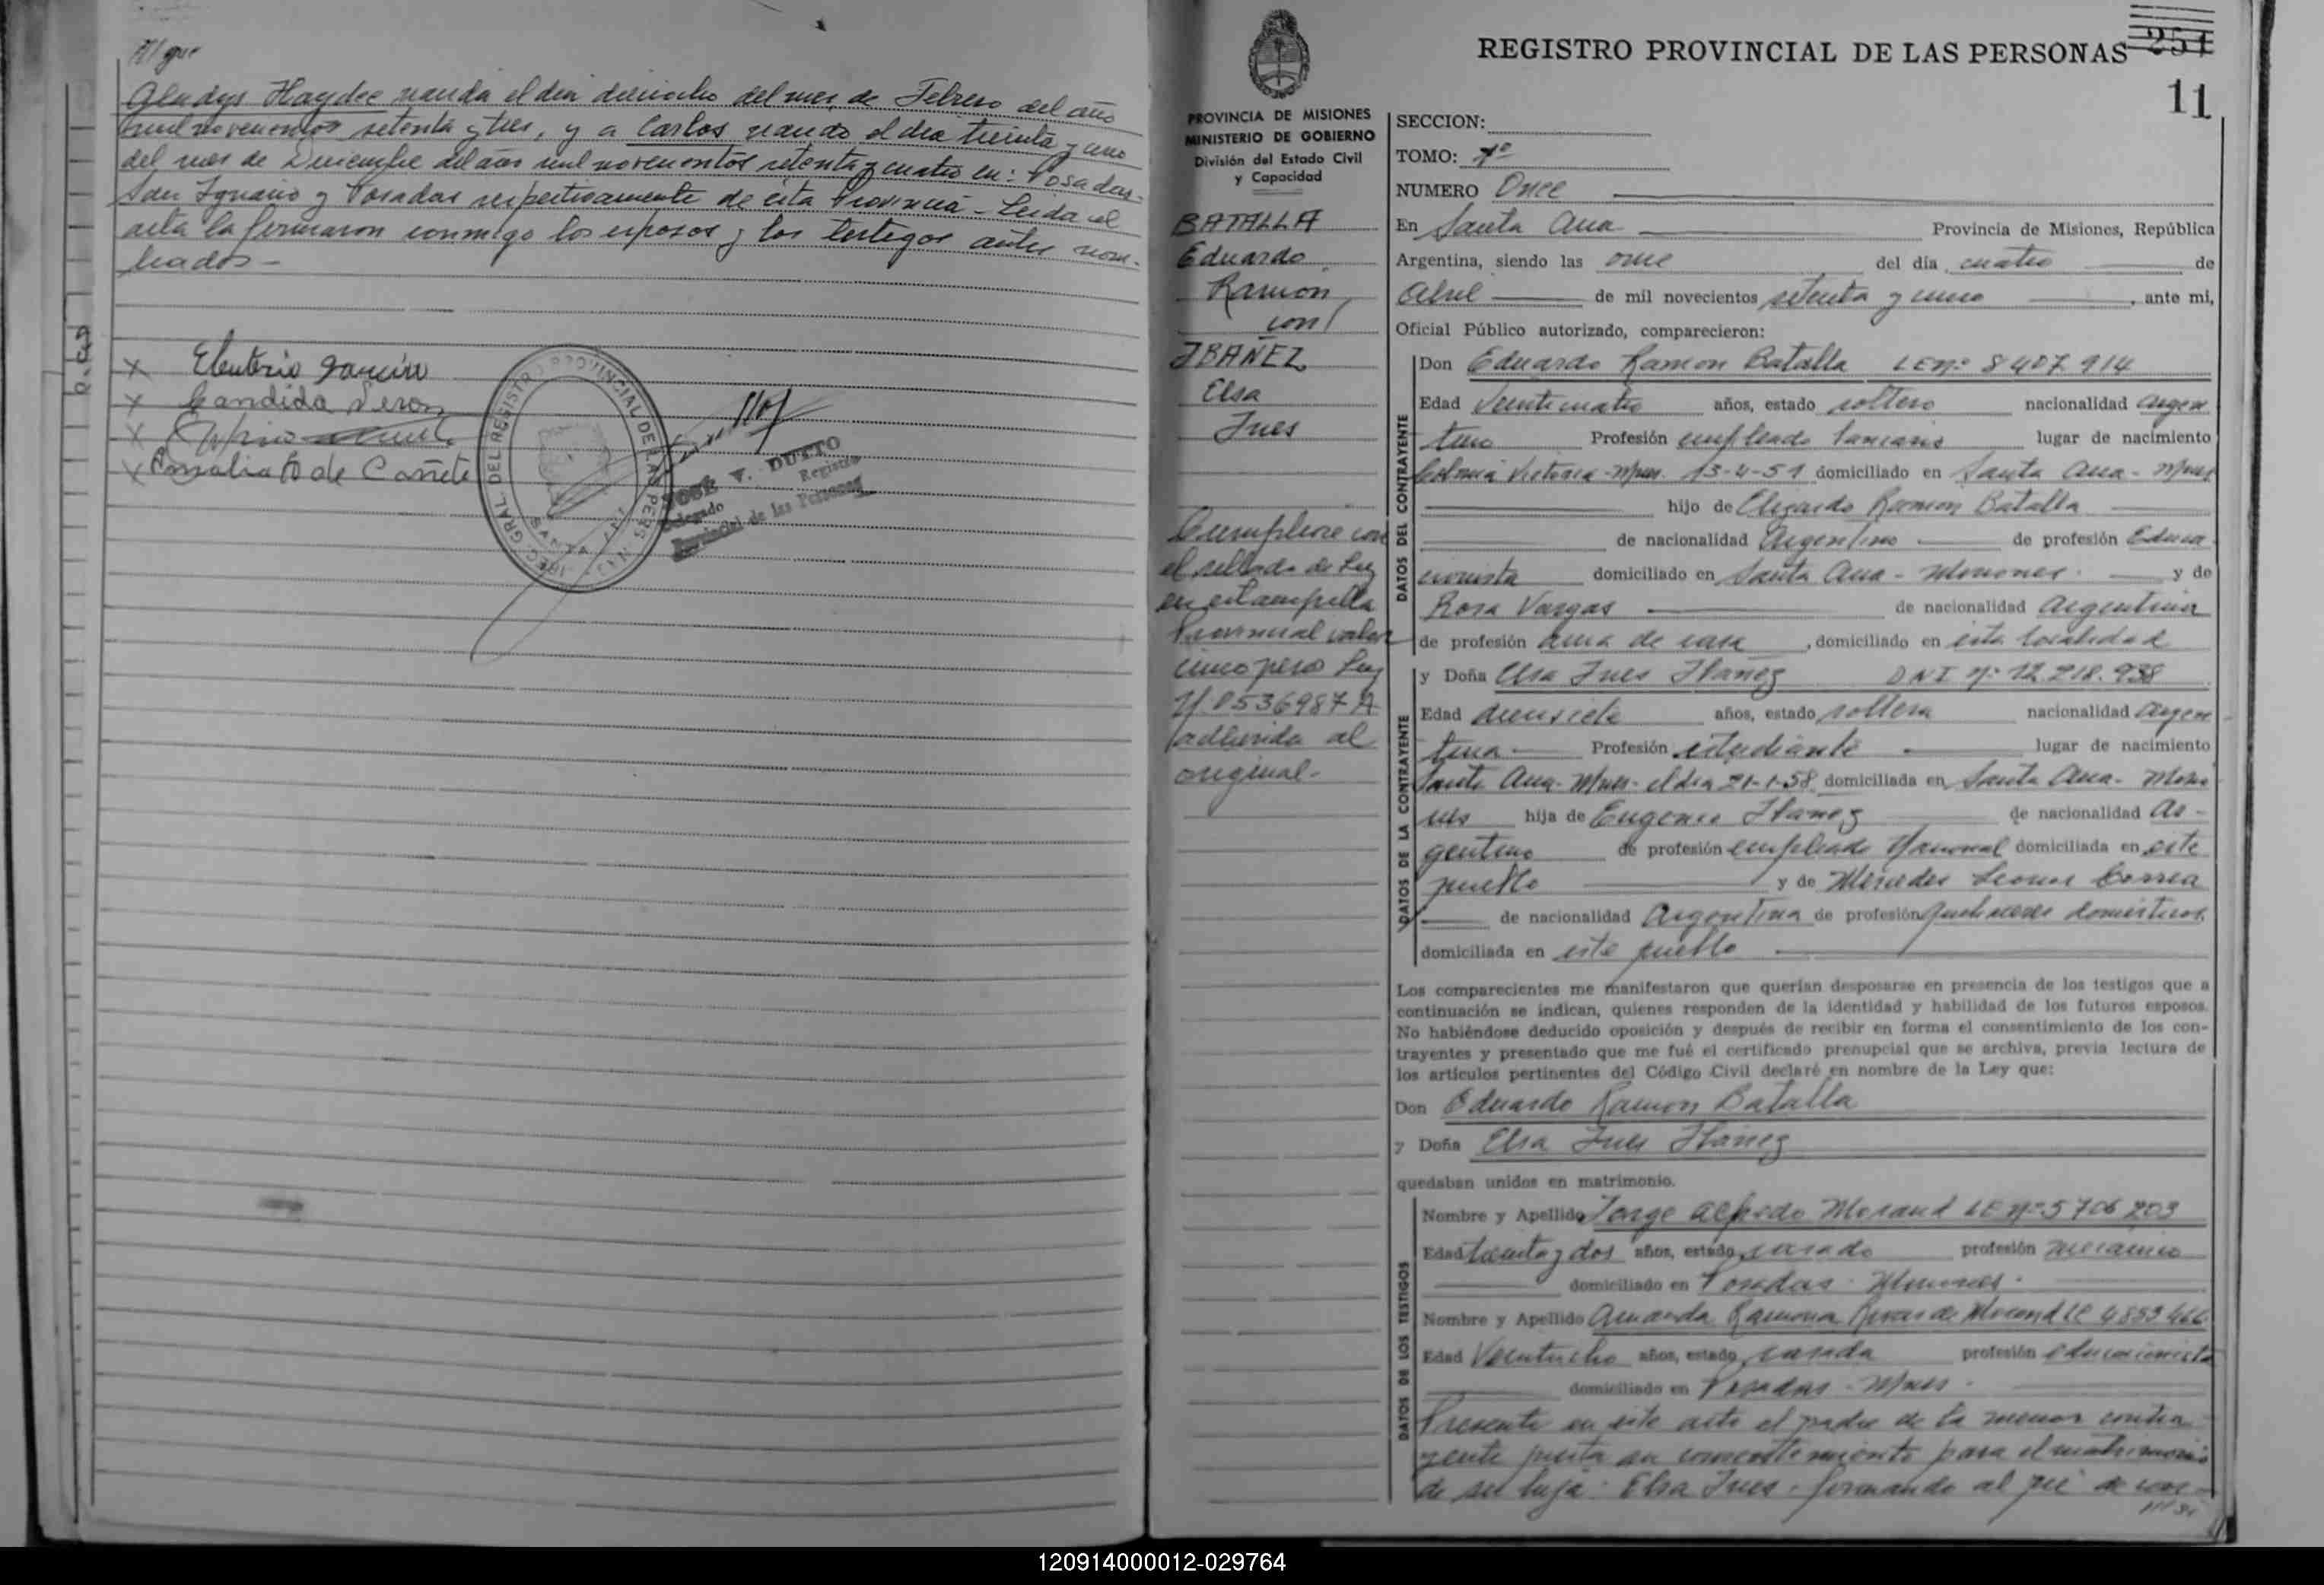 ///que
Gladys Haydee nacida el día dieciocho del mes de Febrero del año
mil novecientos setenta y tres, y a Carlos nacido el día treinta y uno
del mes de Diciembre del año mil novecientos setenta y cuatro en: Posadas-
San Ignacio y Posadas respectivamente de ésta Provincia - Leida el
acta la firmaron conmigo los esposos y los testigos antes nom-
brados -
x Eleuterio
x Candida Veron
x
x Rosalia de Cañete
JOSÉ V. DUTTO
Delegado Registro
Provincial de las Personas
REGISTRO PROVINCIAL DE LAS PERSONAS 251
11
PROVINCIA DE MISIONES
MINISTERIO DE GOBIERNO
División del Estado Civil
y Capacidad
BATALLA
Eduardo
Ramon
con/
IBAÑEZ
Elsa
Ines
el sellado de Ley
en estampilla
Provincial valor
cinco peso Ley
Nº 0536987 A
adherida al
original-
SECCION:
TOMO: 1º
NUMERO Once
En Santa Ana Provincia de Misiones, República
Argentina, siendo las once del día cuatro de
Abril de mil novecientos setenta y cinco, ante mi,
Oficial Público autorizado, comparecieron:
DATOS DEL CONTRAYENTE
Don Eduardo Ramon Batalla LE nº 8407914
Edad Veinticuatro años, estado soltero nacionalidad argen
tino Profesión empleado bancario lugar de nacimiento
Colonia Victoria-Mnes. 13-4-51 domiciliado en Santa Ana - Mnes
hijo de Elizardo Ramon Batalla
de nacionalidad Argentino de profesión Educa
cionista domiciliado en Santa Ana - Misiones. y de
Rosa Vargas de nacionalidad Argentina
de profesión ama de casa, domiciliado en esta localidad
DATOS DE LA CONTRAYENTE
y Doña Elsa Ines Ibañez DNI nº 12.218.938
Edad diecisiete años, estado soltera nacionalidad Argen
tina Profesión estudiante lugar de nacimiento
Santa Ana-Mnes- el día 21-1-58 domiciliada en Santa Ana- Misio
nes hija de Eugenio Ibañez de nacionalidad Ar-
gentino de profesión empleado Nacional domiciliada en este
pueblo y de Mercedes Leonor Correa
de nacionalidad Argentina de profesión quehaceres domesticos
domiciliada en este pueblo
Los comparecientes me manifestaron que querían desposarse en presencia de los testigos que a
continuación se indican, quienes responden de la identidad y habilidad de los futuros esposos.
No habiéndose deducido oposición y después de recibir en forma el consentimiento de los con-
trayentes y presentado que me fué el certificado prenupcial que se archiva, previa lectura de
los artículos pertinentes del Código Civil declaré en nombre de la Ley que:
Don Eduardo Ramon Batalla
y Doña Elsa Ines Ibañez
quedaban unidos en matrimonio.
DATOS DE LOS TESTIGOS
Nombre y Apellido Jorge Alfredo Morand LE nº 5706203
Edad treinta y dos años, estado casado profesión mecanico
domiciliado en Posadas - Misiones.
Nombre y Apellido Amanda Ramona Rivas de Morand LC 4853466
Edad Veintiocho años, estado casada profesión educacionista
domiciliado en Posadas - Mnes -
Presente en este acto el padre de la menor contra
yente presta su consentimiento para el matrimonio
de su hija: Elsa Ines - firmando al pié de con-
120914000012-029764